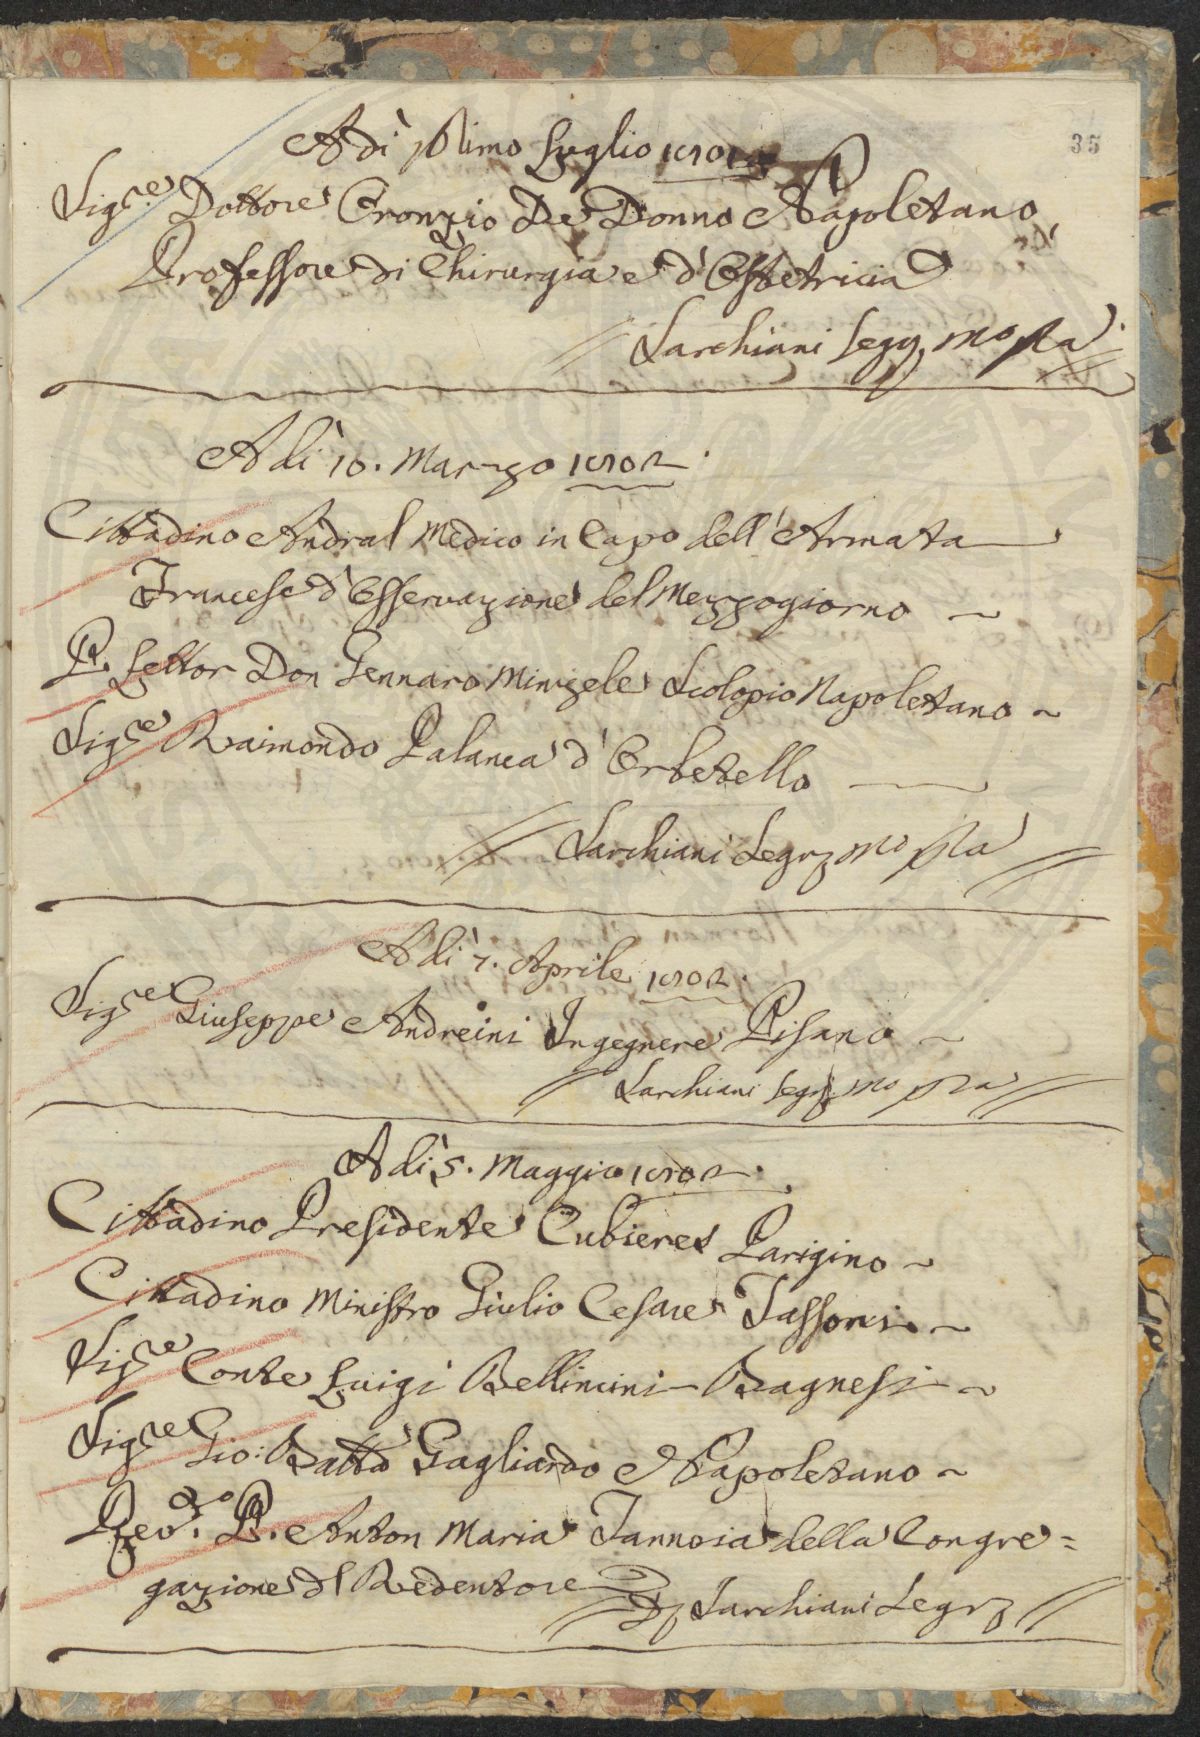 35
Adì primo Luglio 1801
Sig.re Dottore Oronzio De Donno Napoletano
Professore di Chirurgia e d'Ostetricia
Sarchiani Seg.o mo ppa
Adì 10. Marzo 1802.
Cittadino Andral Medico in Capo dell'Armata
Francese d'Osservazione del Mezzogiorno ~
P. Lettor Don Gennaro Minizele Scolopio Napoletano ~
Sig.re Raimondo Palanca d'Orbetello
Sarchiani Segro mo ppa
Adì 7. Aprile 1802.
Sig.re Giuseppe Andreini Ingegnere Pisano ~
Sarchiani Segro mo ppa
Adì 5. Maggio 1802.
Cittadino Presidente Cubieres Parigino ~
Cittadino Ministro Giulio Cesare Tassoni ~
Sig.re Conte Luigi Bellincini Bagnesi ~
Sig.re Gio: Batta Gagliardo Napoletano ~
Rev.mo P. Anton Maria Tannoia della Congre=
gazione del Redentore
Sarchiani Segro